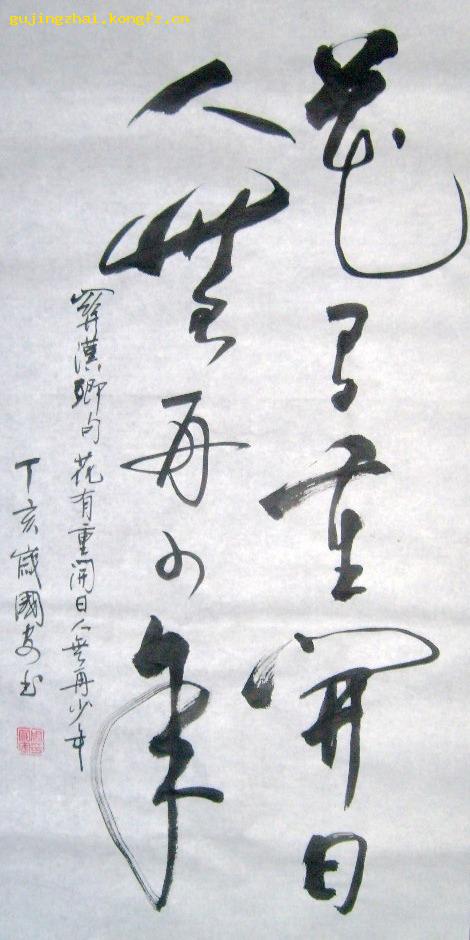 gujingzhai.kongfz.cn
花有重開日
人無再少年
關漢卿句花有重開日人無再少年
丁亥歲國安书